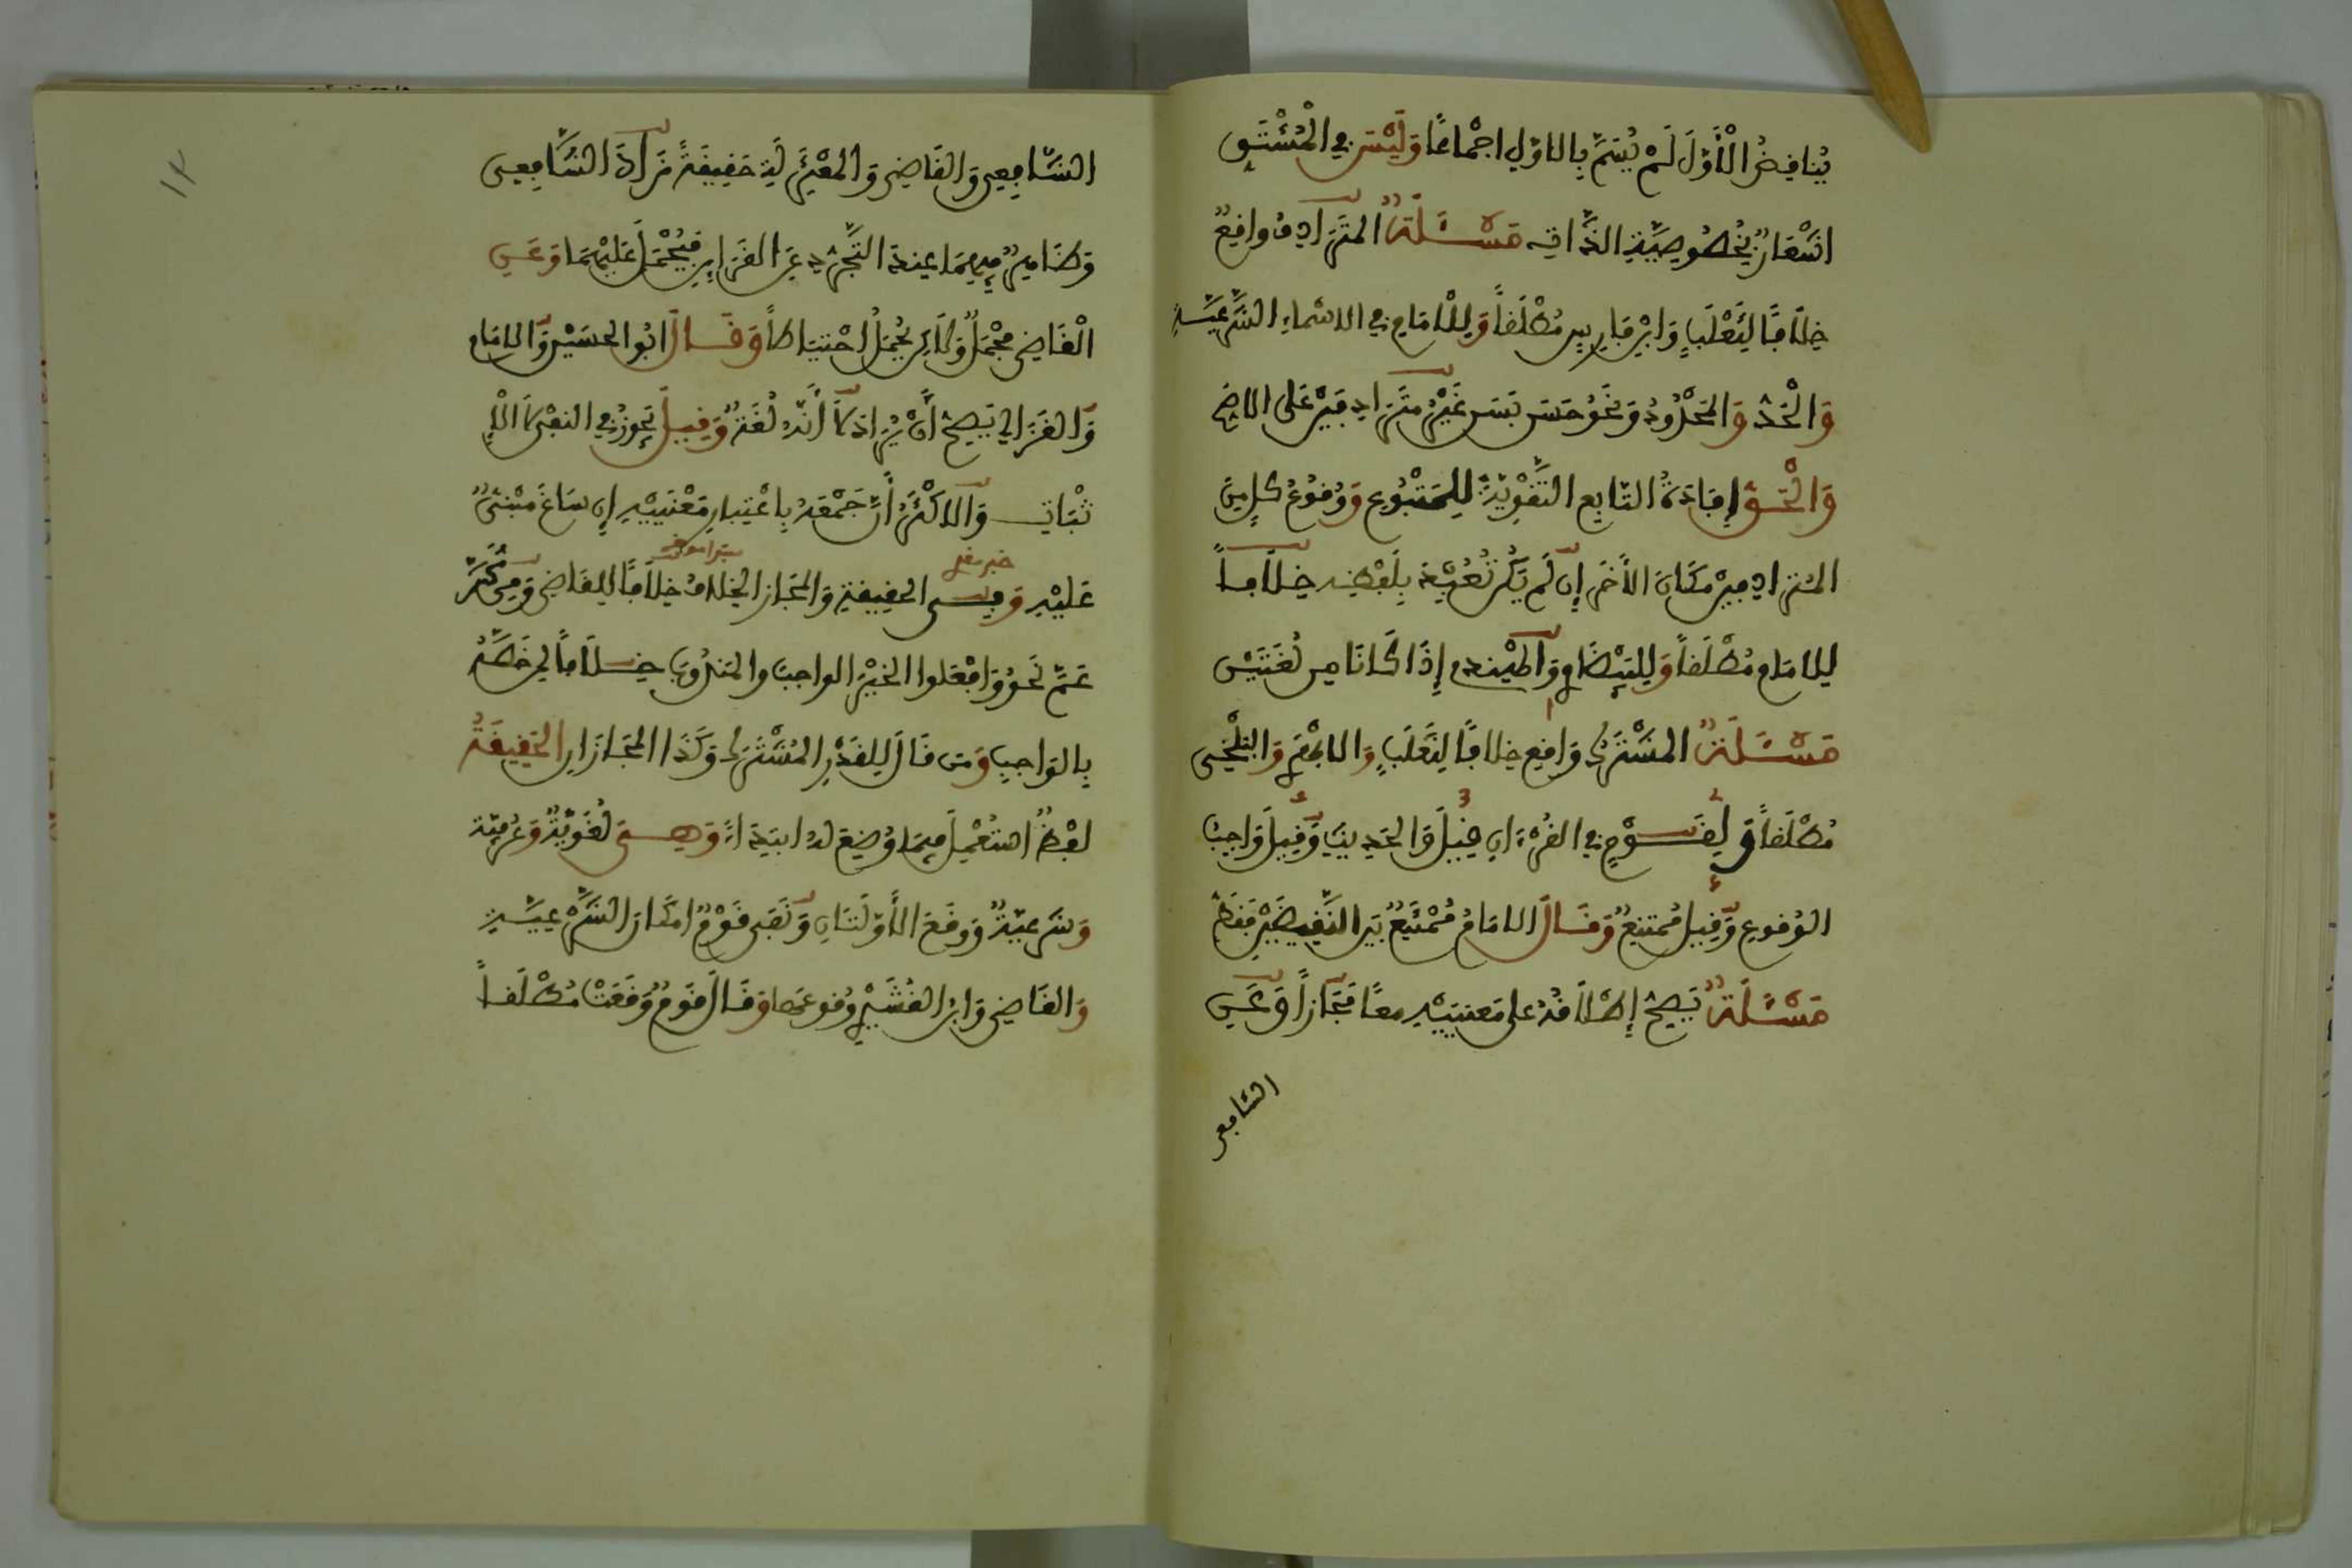 يُنافِضُ الْأَوَّلَ لَمْ يُسَمَّ بِالاوّلِ اجْماعًا وَلَيْسَ فِي الْمُشْتَقِ
اشْعَارٌ بِخُصُوصِيَّةِ الذَّاتِ مَسْـَٔلَةٌ المتَرَادِفُ وافِعٌ
خِلَافًا لِثَعْلَبٍ وَابْنِ فَارِسٍ مُطْلَفاً وَلِلْامَامِ فِي الاسْمَاءِ الشَّرْعِيَّةِ
وَالْحَدُّ وَالمَحْدُودُ وَنَحْوُ حَسَنٍ بَسَنٍ غَيْرُ مُتَرَادِفَيْنِ عَلَى الاصَحِّ
وَالْحَقُّ إِفَادَةُ التَّابِعِ التَّفْوِيَةَ لِلْمَتْبُوعِ وَوُفُوعُ كُلٍّ مِنَ
المُتَرَادِفَيْنِ مَكَانَ الأَخَرِ إِن لَّمْ يَكُنْ تُعُبِّدَ بِلَفْظِهِ خِلَافاً
لِلامَامِ مُطْلَفاً وَلِلْبَيْضَاوِي وَالْهِنْدِي إِذَا كَانَا مِن لُغَتَيْنِ
مَسْـَٔلَةٌ المُشْتَرَكُ وَافِعٌ خِلافًا لِثَعْلَبٍ وَالابْهَرِي وَالبَلْخِي
مُطْلَفاً وَلِفَوْمٍ فِي الفُرْءَانِ فِيلَ وَالحَدِيثِ وَفِيلَ وَاجِبُ
الوُفُوعِ وَفِيلَ مُمْتَنِعٌ وَفَالَ الامَامُ مُمْتَنِعٌ بَيْنَ النَّفِيضَيْنِ فَفَطْ
مَسْـَٔلَةٌ يَصِحُّ إِطْلَافُهُ عَلَى مَعْنَيَيْهِ مَعًا مَجَازًا وَعَنِ
الشافعي
١٣
الشَّافِعِي وَالفَاضِي وَالمُعْتَزِلَةِ حَفِيفَةً زَادَ الشَّافِعِي
وَظَاهِرٌ فِيهِمَا عِنْدَ التَّجَرُّدِ عَنِ الفَرَائِنِ فَيُحْمَلُ عَلَيْهِمَا وَعَنِ
الْفَاضِي مُجْمَلٌ وَلَكِنْ يُحْمَلُ احْتِيَاطًا وَفَالَ ابُوا الحُسَيْنِ وَالامَام
وَالغَزَالِي يَصِحُّ أَنْ يُرَادَ لَا أَنَّهُ لُغَةٌ وَفِيلَ يَجُوزُ فِي النَّفْيِ لَا الْإِ
ثْبَاتِ وَالاكْثَرُ أَنَّ جَمْعَهُ بِاعْتِبَارِ مَعْنَيَيْهِ إِن سَاغَ مَبْنِيٌّ
عَلَيْهِ وَفِي الحَفِيفَةِ وَالمَجَازِ الخِلافُ خِلَافًا لِلفَاضِي وَمِن ثَمَّ
عَمَّ نَحْوُ وَافْعَلُوا الخَيْرَ الوَاجِبَ وَالمَنْدُوبَ خِلَافاً لِمَنْ خَصَّهُ
بِالوَاجِبِ وَمَن فَالَ لِلفَدْرِ المُشْتَرَكِ وَكَذَا المَجَازَانِ الحَفِيفَةُ
لَفْظٌ اسْتُعْمِلَ فِيمَا وُضِعَ لَهُ ابْتِدَاءً وَهِيَ لُغَوِيَّةٌ وَعُرْفِيَّة
وَشَرْعِيَّةٌ وَوَفَعَ الأُولَتَانِ وَنَفَى فَوْمٌ امْكَانَ الشَّرْعِيَّةِ
وَالفَاضِي وَابْنُ الفُشَيْرِي وُفُوعَهَا وَفَالَ فَوْمٌ وَفَعَتْ مُطْلَفاً